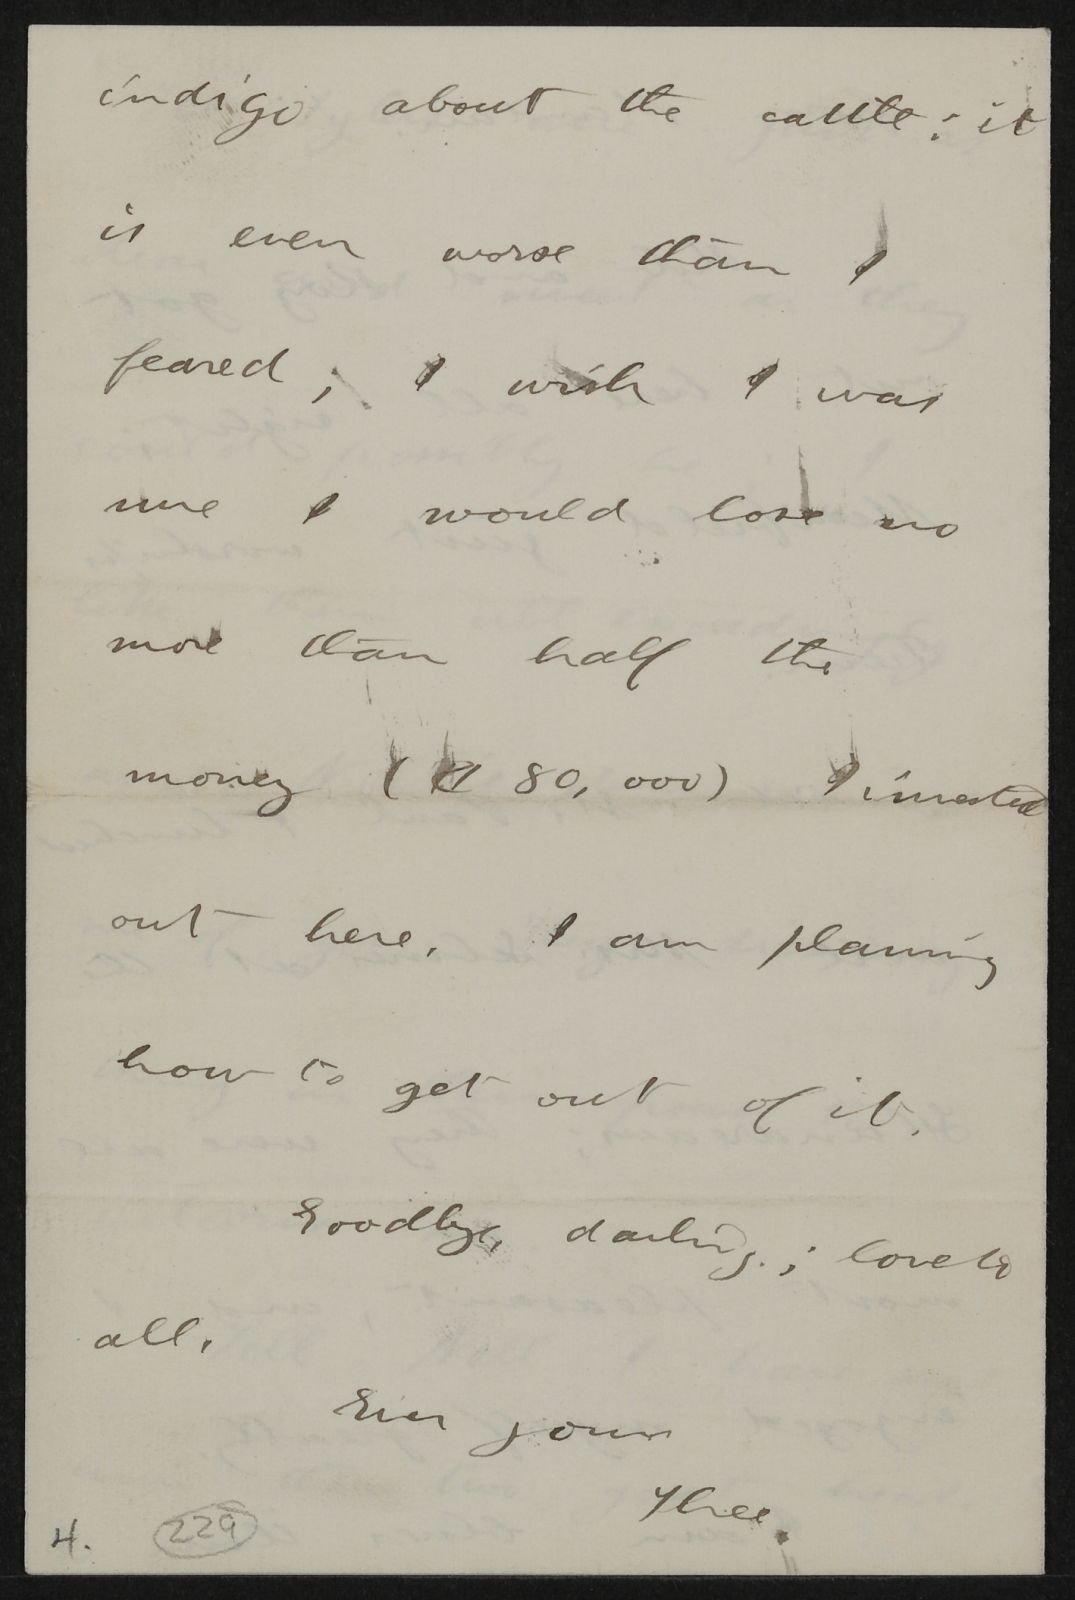 indigo about the cattle; it
is even worse than I
feared; I wish I was
sure I would lose no
more than half the
money ($ 80,000) I invested
out here. I am planning
how to get out of it.
Goodbye, darling; love to
all.
Ever your
Thee.
4.
229